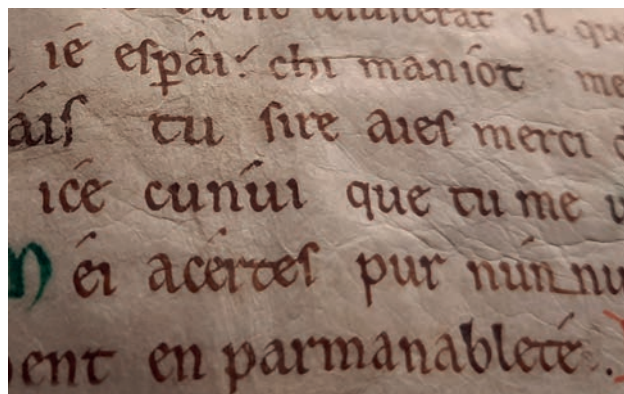 il
ié eſꝑái: chi maniót me
áiſ tu ſire aieſ merci
icé cunúi que tu me
éi acérteſ pur nún nu
ent en parmanableté .